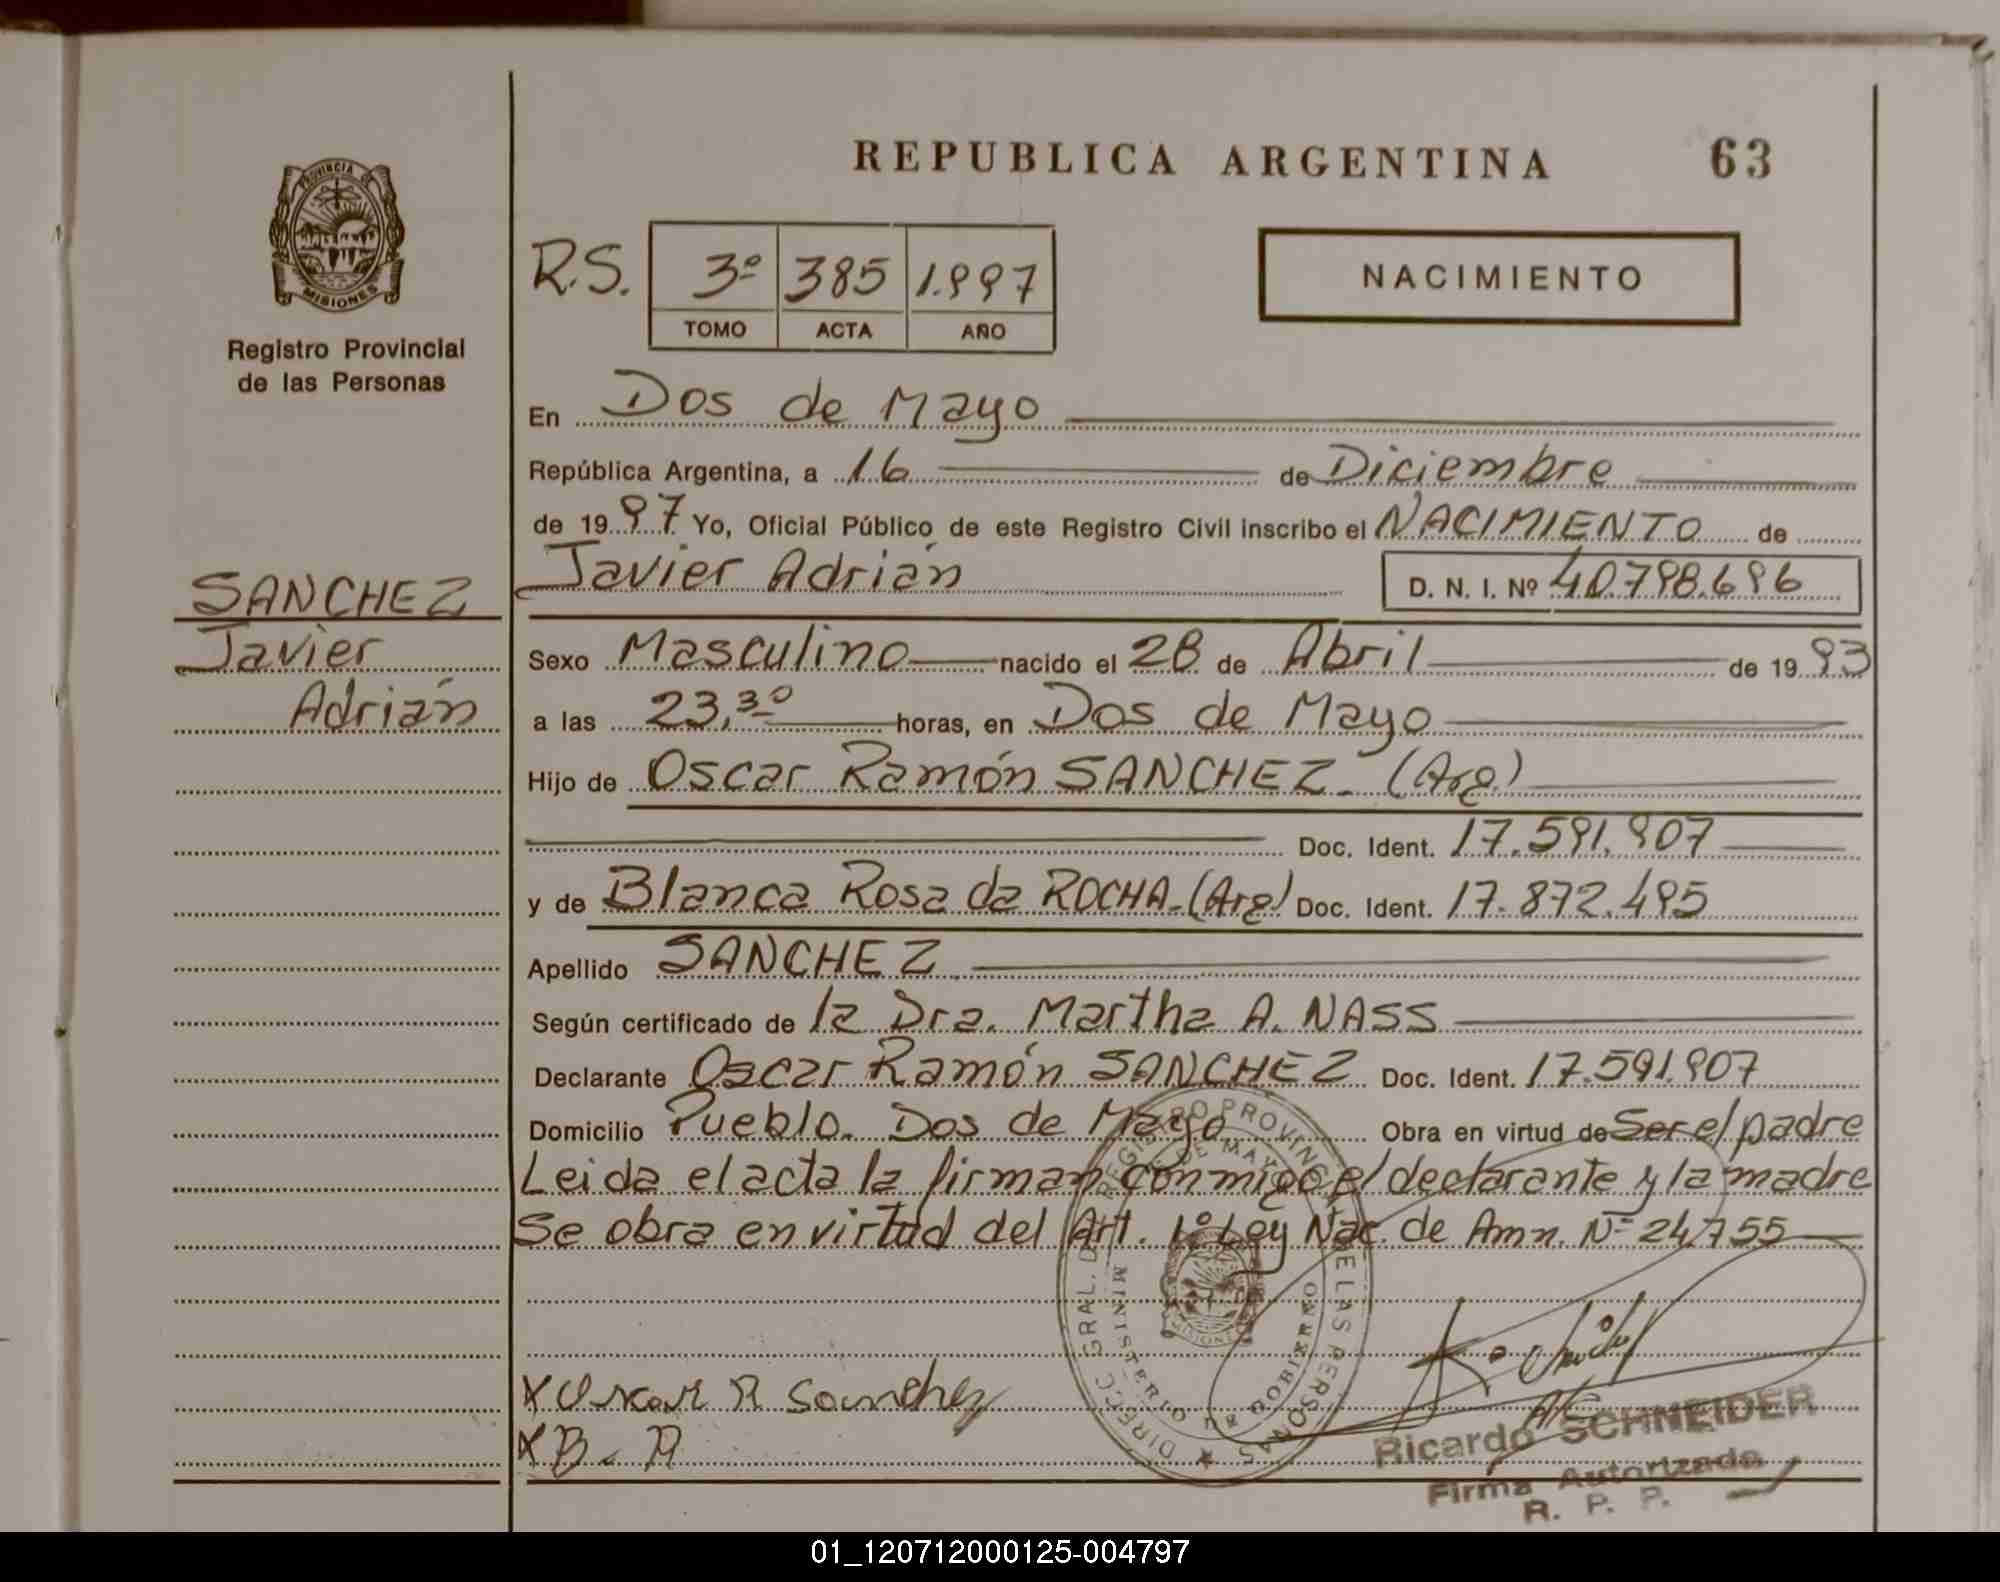 REPUBLICA ARGENTINA 63
PROVINCIA DE
MISIONES
Registro Provincial
de las Personas
R.S. 3º 385 1.997
TOMO ACTA AÑO
NACIMIENTO
En Dos de Mayo
República Argentina, a 16 de Diciembre
de 1997 Yo, Oficial Público de este Registro Civil inscribo el NACIMIENTO de
Javier Adrián D. N. I. Nº 40.798.696
SANCHEZ
Javier
Adrián
Sexo Masculino nacido el 28 de Abril de 1993
a las 23,30 horas, en Dos de Mayo
Hijo de Oscar Ramón SANCHEZ - (Arg.)
Doc. Ident. 17.591.907
y de Blanca Rosa da ROCHA - (Arg) Doc. Ident. 17.872.495
Apellido SANCHEZ
Según certificado de la Dra. Martha A. NASS
Declarante Oscar Ramón SANCHEZ Doc. Ident. 17.591.907
Domicilio Pueblo. Dos de Mayo Obra en virtud de Ser el padre
Leida el acta la firman conmigo el declarante y la madre
Se obra en virtud del Art. 1º Ley Nac. de Amn. Nº 24.755
DIRECC. GRAL. DE REGISTRO PROVINCIAL DE LAS PERSONAS
DOS DE MAYO
MINISTERIO DE GOBIERNO
MISIONES
X Oscar R Sanchez
X B. R
Ricardo SCHNEIDER
Firma Autorizada
R. P. P.
01_120712000125-004797